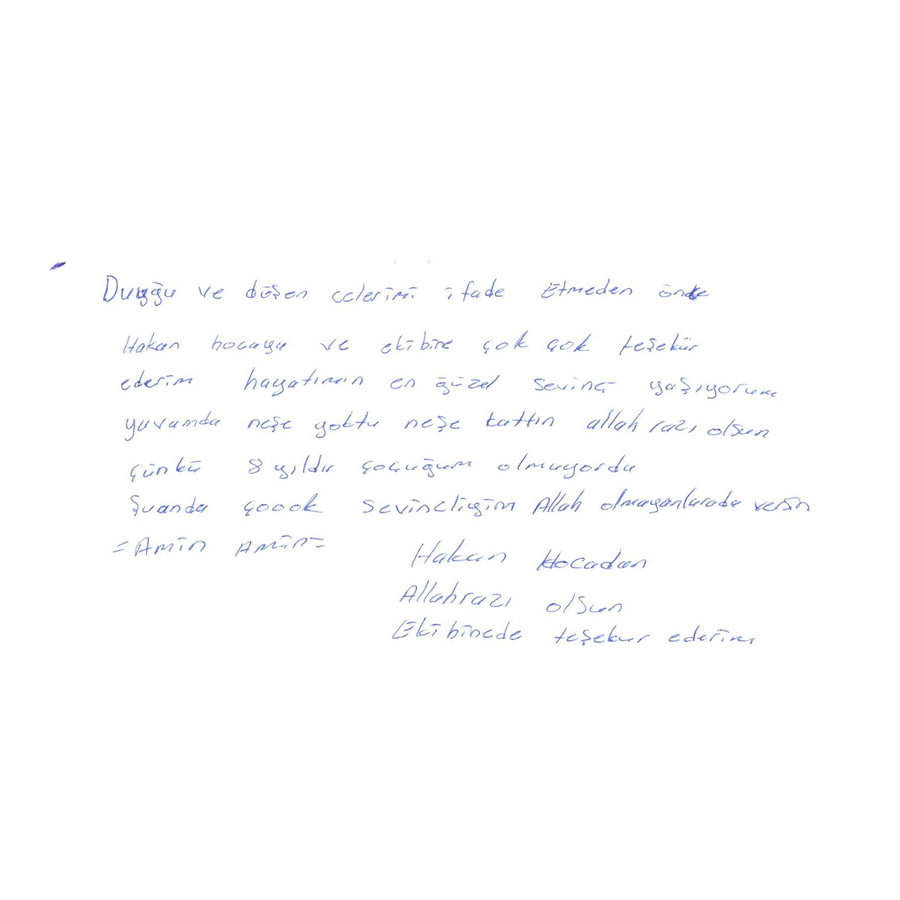 Duygu ve düşen celerimi ifade Etmeden önce
Hakan hocaya ve ekibine çok çok teşekür
ederim hayatımın en güzel sevinci yaşıyorum
yuvamda neşe yoktu neşe kattın allah razı olsun
çünkü 8 yıldır çocuğum olmuyordu
Şuanda çoook sevinçliyim Allah olmayanlarada versin
= Amin Amin =
Hakan Hocadan
Allahrazı olsun
Ekibinede teşekur ederim